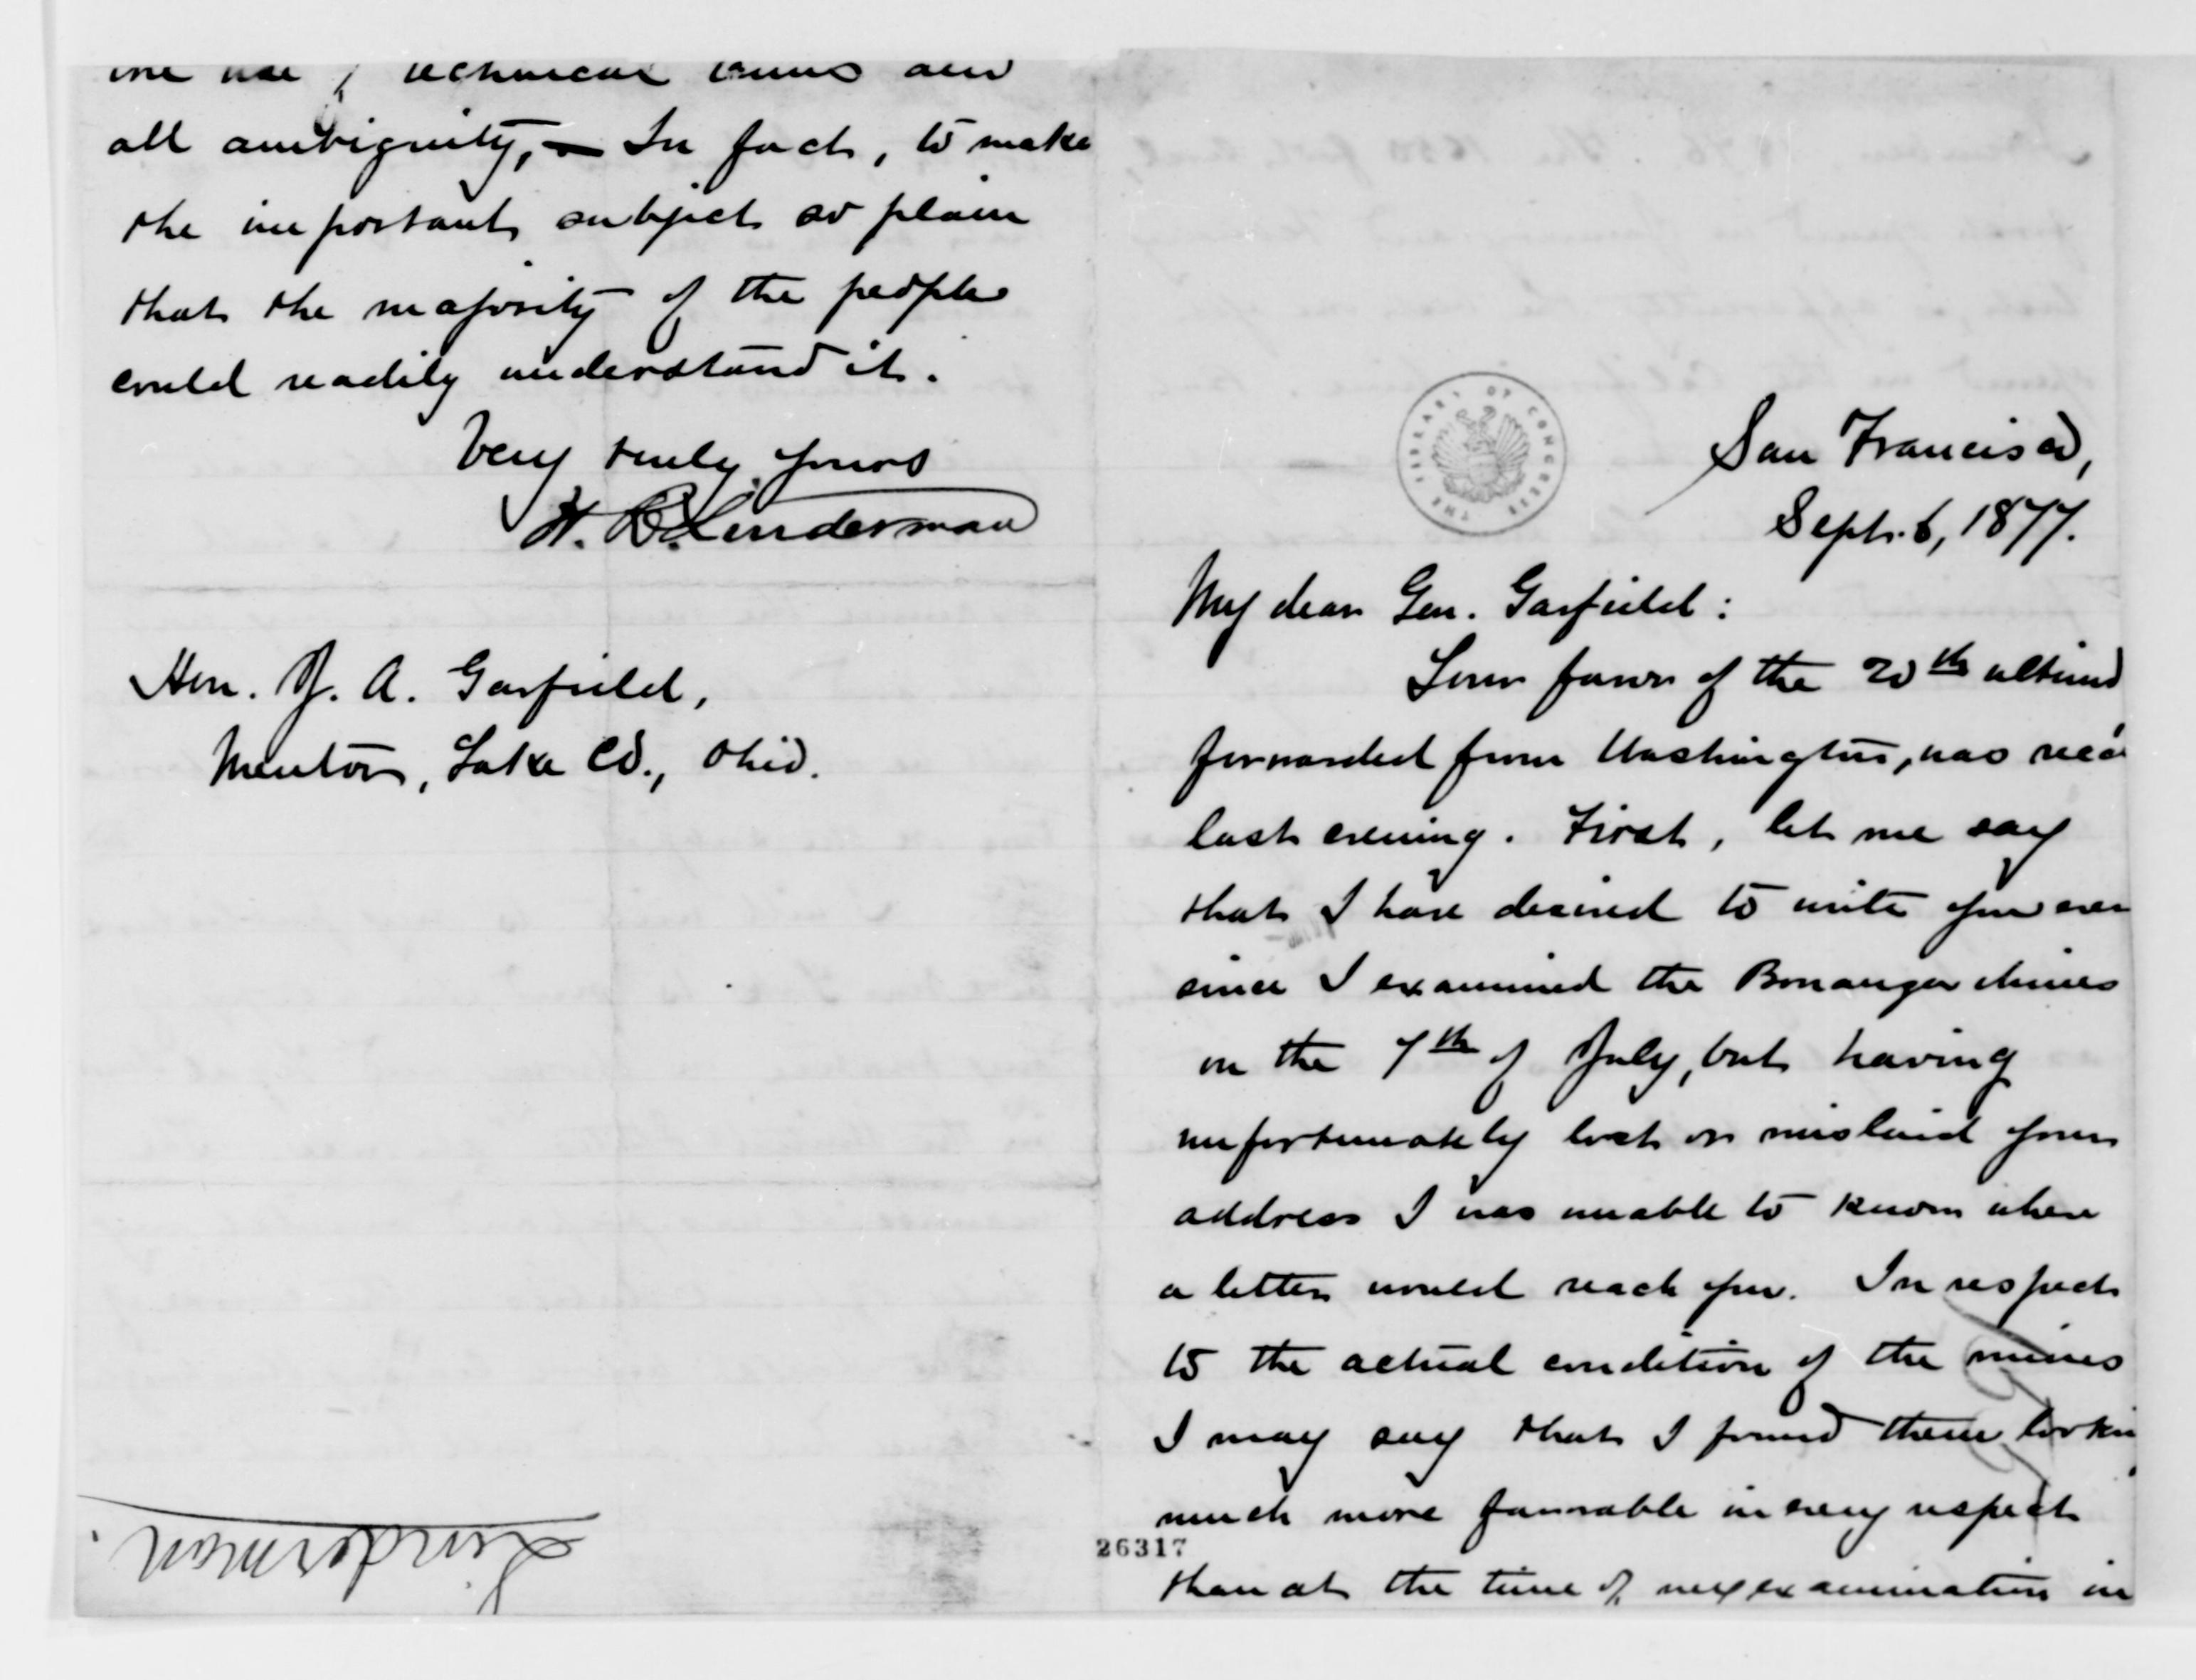 the use of technical terms and
all ambiguity, — In fact, to make
the important subject so plain
that the majority of the people
could readily understand it.
Very truly yours
H. R. Linderman
Hon. J. A. Garfield,
Mentor, Lake Co., Ohio.
Linderman
San Francisco,
Sept. 6, 1877.
THE LIBRARY OF CONGRESS
My dear Gen. Garfield:
Your favor of the 20th ultimo
forwarded from Washington, was rec'd
last evening. First, let me say
that I have desired to write you ever
since I examined the Bonanza Mines
on the 7th of July, but having
unfortunately lost or mislaid your
address I was unable to know where
a letter would reach you. In respect
to the actual condition of the mines
I may say that I found them lookin
much more favorable in every respect
26317
than at the time of my examination in